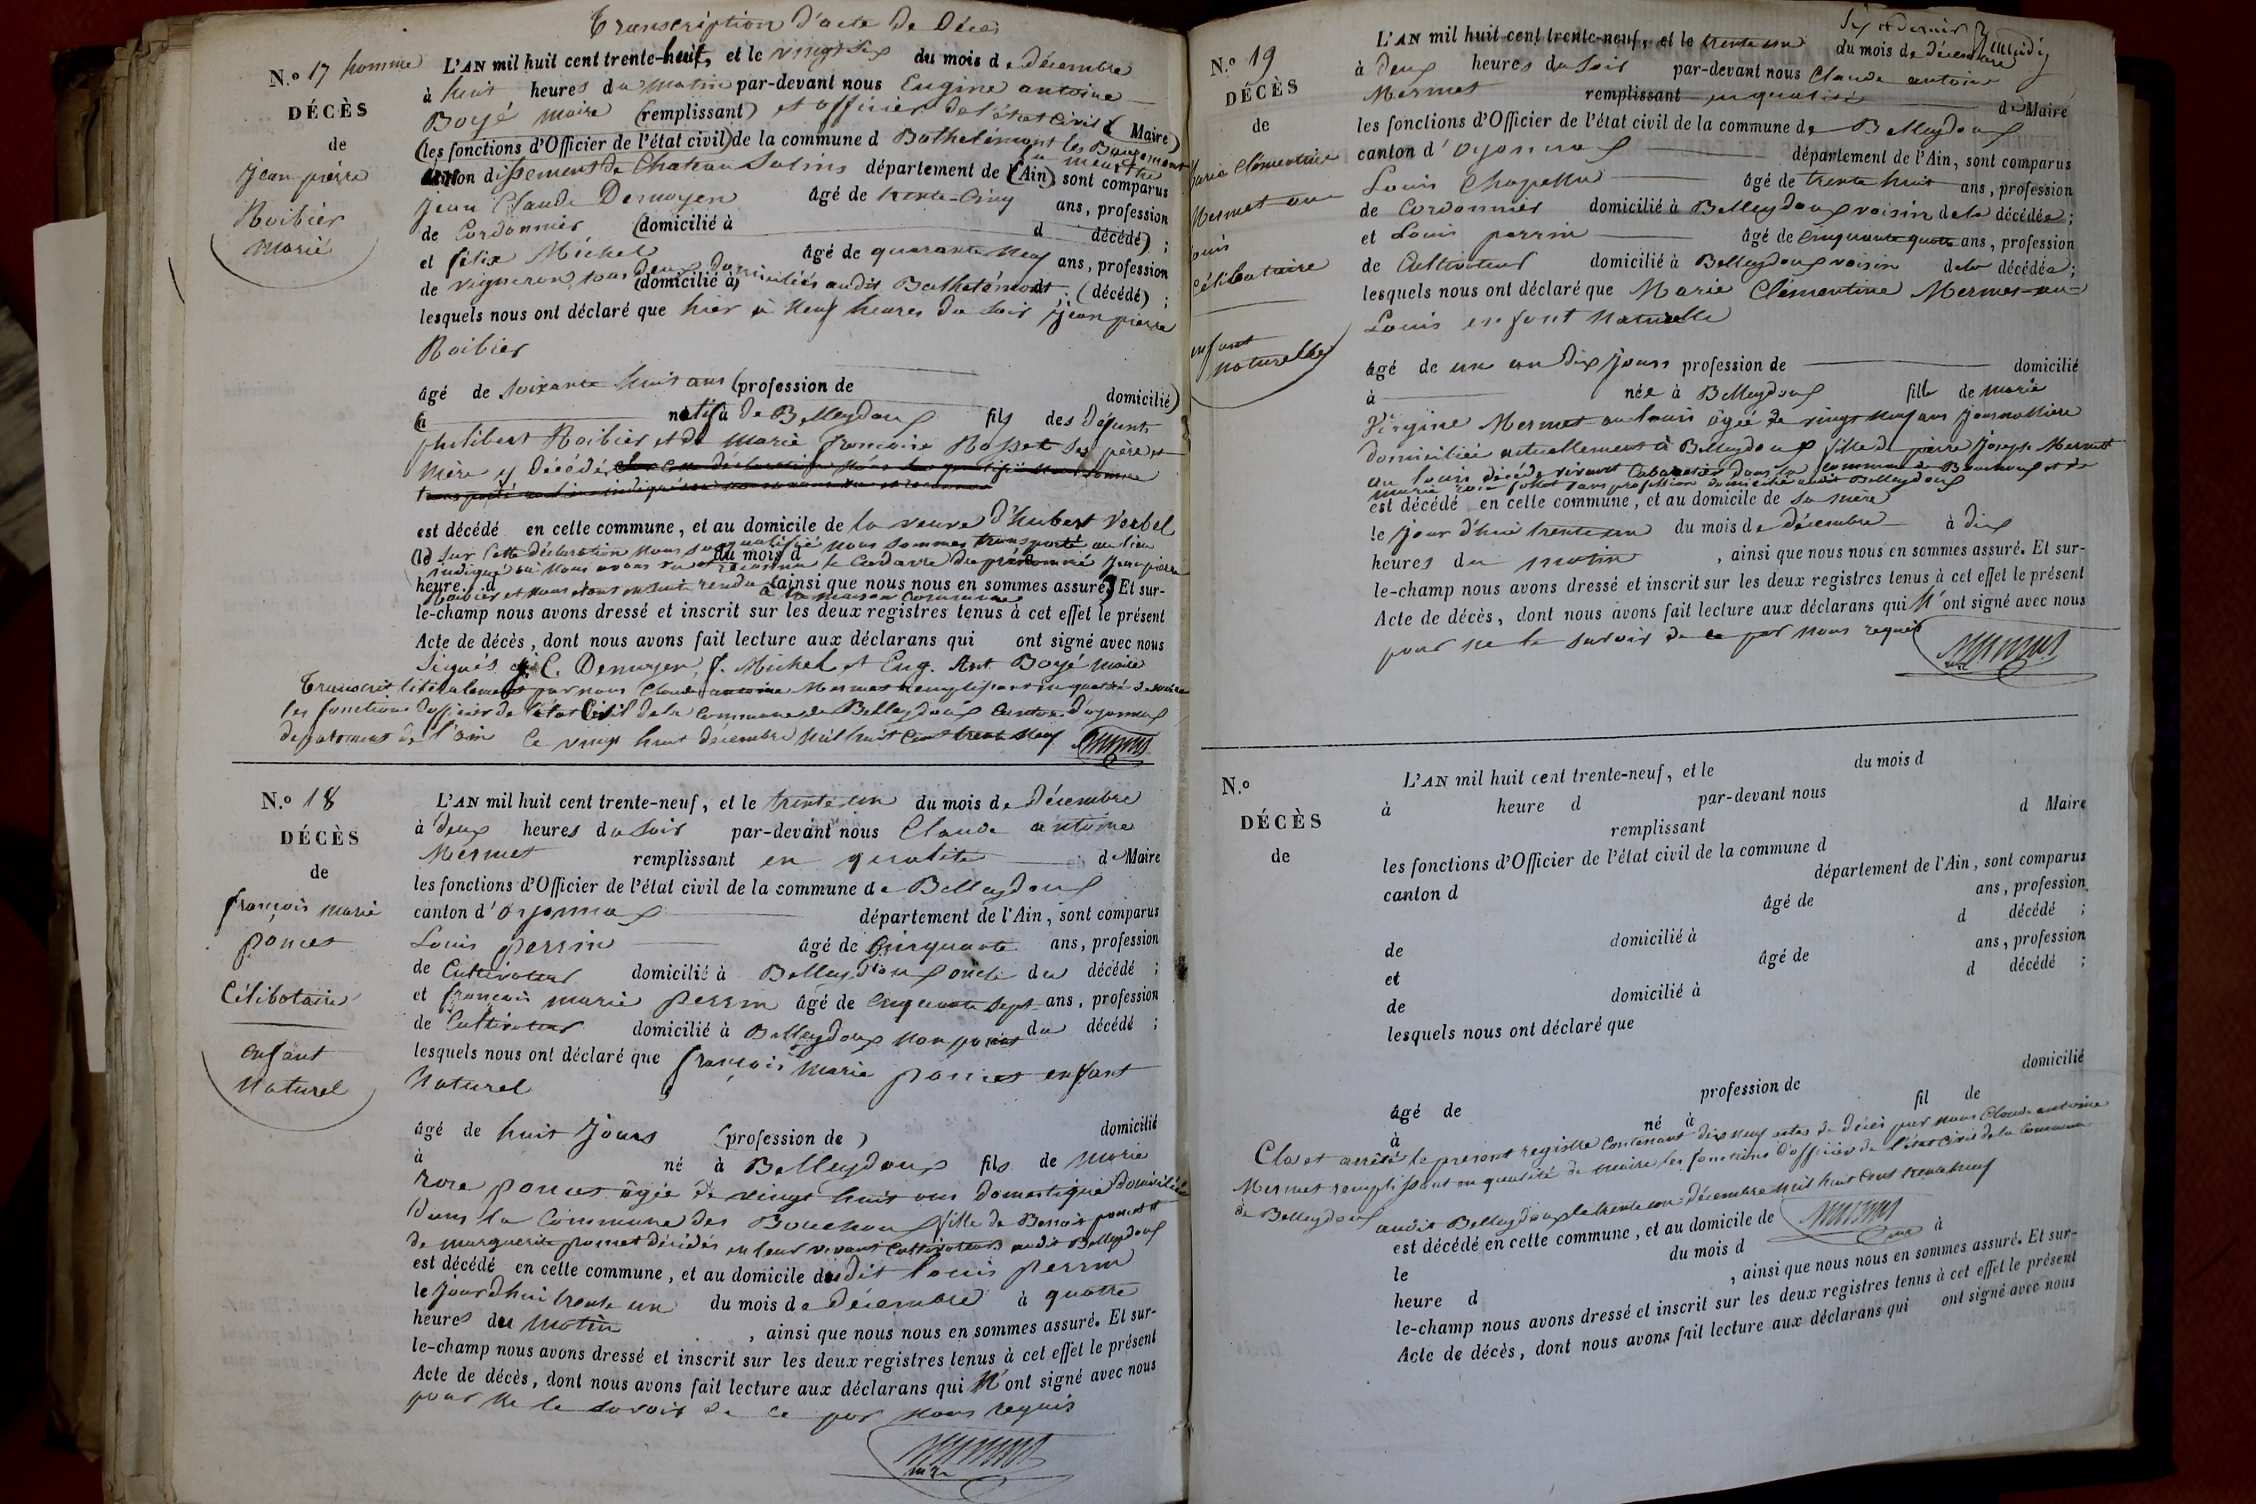 Transcription d'acte de Décès
N.º 17 homme
DÉCÈS
de
Jean pierre
Roibier
marié
L'AN mil huit cent trente-huit, et le vingt six du mois de décembre
à huit heures du matin par-devant nous Eugine antoine
Boyé maire (remplissant) et officier de l'état civil (Maire)
(les fonctions d'Officier de l'état civil) de la commune d Bathelémont les Bauzemont
dissement de Chateau Salins département de (Ain) la meurthe sont comparus
Jean Claude Demoyen âgé de trente cinq ans, profession
de Cordonnier (domicilié à d décédé) ;
et felix Michel âgé de quarante neuf ans, profession
de vigneron, tous deux domiciliés audit Bathelémont (domicilié à) d (décédé) ;
lesquels nous ont déclaré que hier à neuf heures du soir Jean pierre
Roibier
âgé de soixante huit ans (profession de domicilié)
(à natif à de Belleydoux fils des défunts
philibert Roibier et de marie francoise Rosset ses père et
mère y décédés
est décédé en cette commune, et au domicile de la veuve d'hubert Verbel
sur cette déclaration nous susqualifié nous sommes transporté au lieu
du mois d
indiqué où nous avons vu et reconnu le Cadavre du prénommé Jean pierre
heure d ainsi que nous nous en sommes assuré. Et sur-
Roibier et nous étant ensuite rendu à la maison commune
le-champ nous avons dressé et inscrit sur les deux registres tenus à cet effet le présent
Acte de décès, dont nous avons fait lecture aux déclarans qui ont signé avec nous
Signés J. C. Demoyen, f. Michel et Eug. Ant. Boyé maire
Transcrit litéralement par nous Claude antoine Mermet remplissant en qualité de maire
les fonctions d'officier de l'état Civil de la commune de Belleydoux Canton d'oyonnax
département de l'ain le vingt huit décembre mil huit cent trente neuf Mermet
N.º 18
DÉCÈS
de
françois marie
poncet
Célibataire
enfant
Naturel
L'AN mil huit cent trente-neuf, et le trente un du mois de décembre
à deux heures du soir par-devant nous Claude antoine
Mermet remplissant en qualité de Maire
les fonctions d'Officier de l'état civil de la commune de Belleydoux
canton d'oyonnax département de l'Ain, sont comparus
Louis perrin âgé de Cinquante ans, profession
de Cultivateur domicilié à Belleydoux oncle du décédé ;
et françois marie perrin âgé de Cinquante sept ans, profession
de Cultivateur domicilié à Belleydoux non parent du décédé ;
lesquels nous ont déclaré que françois Marie poncet enfant
Naturel
âgé de huit Jours (profession de) domicilié
à né à Belleydoux fils de marie
rose poncet âgée de vingt huit ans domestique domiciliée
dans la Commune des Bouchoux fille de poncet et
de marguerite poncet décédés en leur vivant Cultivateurs audit Belleydoux
est décédé en cette commune, et au domicile dudit louis perrin
le jourdhui trente un du mois de décembre à quatre
heures du matin , ainsi que nous nous en sommes assuré. Et sur-
le-champ nous avons dressé et inscrit sur les deux registres tenus à cet effet le présent
Acte de décès, dont nous avons fait lecture aux déclarans qui N'ont signé avec nous
pour ne le savoir de ce par nous requis
Mermet
mre
Six et dernier
N.º 19
DÉCÈS
de
Marie Clémentine
Mermet au
Louis
Célibataire
enfant
naturelle
L'AN mil huit cent trente-neuf, et le trente un du mois de décembre
à deux heures du soir par-devant nous Claude antoine
Mermet remplissant en qualité de Maire
les fonctions d'Officier de l'état civil de la commune de Belleydoux
canton d'oyonnax département de l'Ain, sont comparus
Louis Chapelle âgé de trente huit ans, profession
de Cordonnier domicilié à Belleydoux voisin de la décédée ;
et Louis perrin âgé de Cinquante quatre ans, profession
de Cultivateur domicilié à Belleydoux voisin de la décédée ;
lesquels nous ont déclaré que Marie Clémentine Mermet au
Louis enfant Naturelle
âgé de un an dix jours profession de domicilié
à née à Belleydoux fille de marie
Virgine Mermet au louis âgée de vingt neuf ans Journallière
domiciliée actuellement à Belleydoux fille de pierre Joseph Mermet
au louis décédé vivant Cabaretier dans la commune de et de
marie sans profession domiciliée audit Belleydoux
est décédé en cette commune, et au domicile de sa mère
le jour d'hui trente un du mois de décembre à dix
heures du matin , ainsi que nous nous en sommes assuré. Et sur-
le-champ nous avons dressé et inscrit sur les deux registres tenus à cet effet le présent
Acte de décès, dont nous avons fait lecture aux déclarans qui N'ont signé avec nous
pour ne le savoir de ce par nous requis
Mermet
mre
N.º
DÉCÈS
de
L'AN mil huit cent trente-neuf, et le du mois d
à heure d par-devant nous
remplissant d Maire
les fonctions d'Officier de l'état civil de la commune d
canton d département de l'Ain, sont comparus
âgé de ans, profession
de domicilié à d décédé ;
et âgé de ans, profession
de domicilié à d décédé ;
lesquels nous ont déclaré que
âgé de profession de domicilié
à né à fil de
Clos et arrêté le present registre Contenant dix neuf actes de décès par nous Claude antoine
Mermet remplissant en qualité de maire les fonctions d'officier de l'état civil de la Commune
de Belleydoux audit Belleydoux le trente un décembre mil huit Cent trente neuf
Mermet
est décédé en cette commune, et au domicile de
le du mois d à
heure d , ainsi que nous nous en sommes assuré. Et sur-
le-champ nous avons dressé et inscrit sur les deux registres tenus à cet effet le présent
Acte de décès, dont nous avons fait lecture aux déclarans qui ont signé avec nous